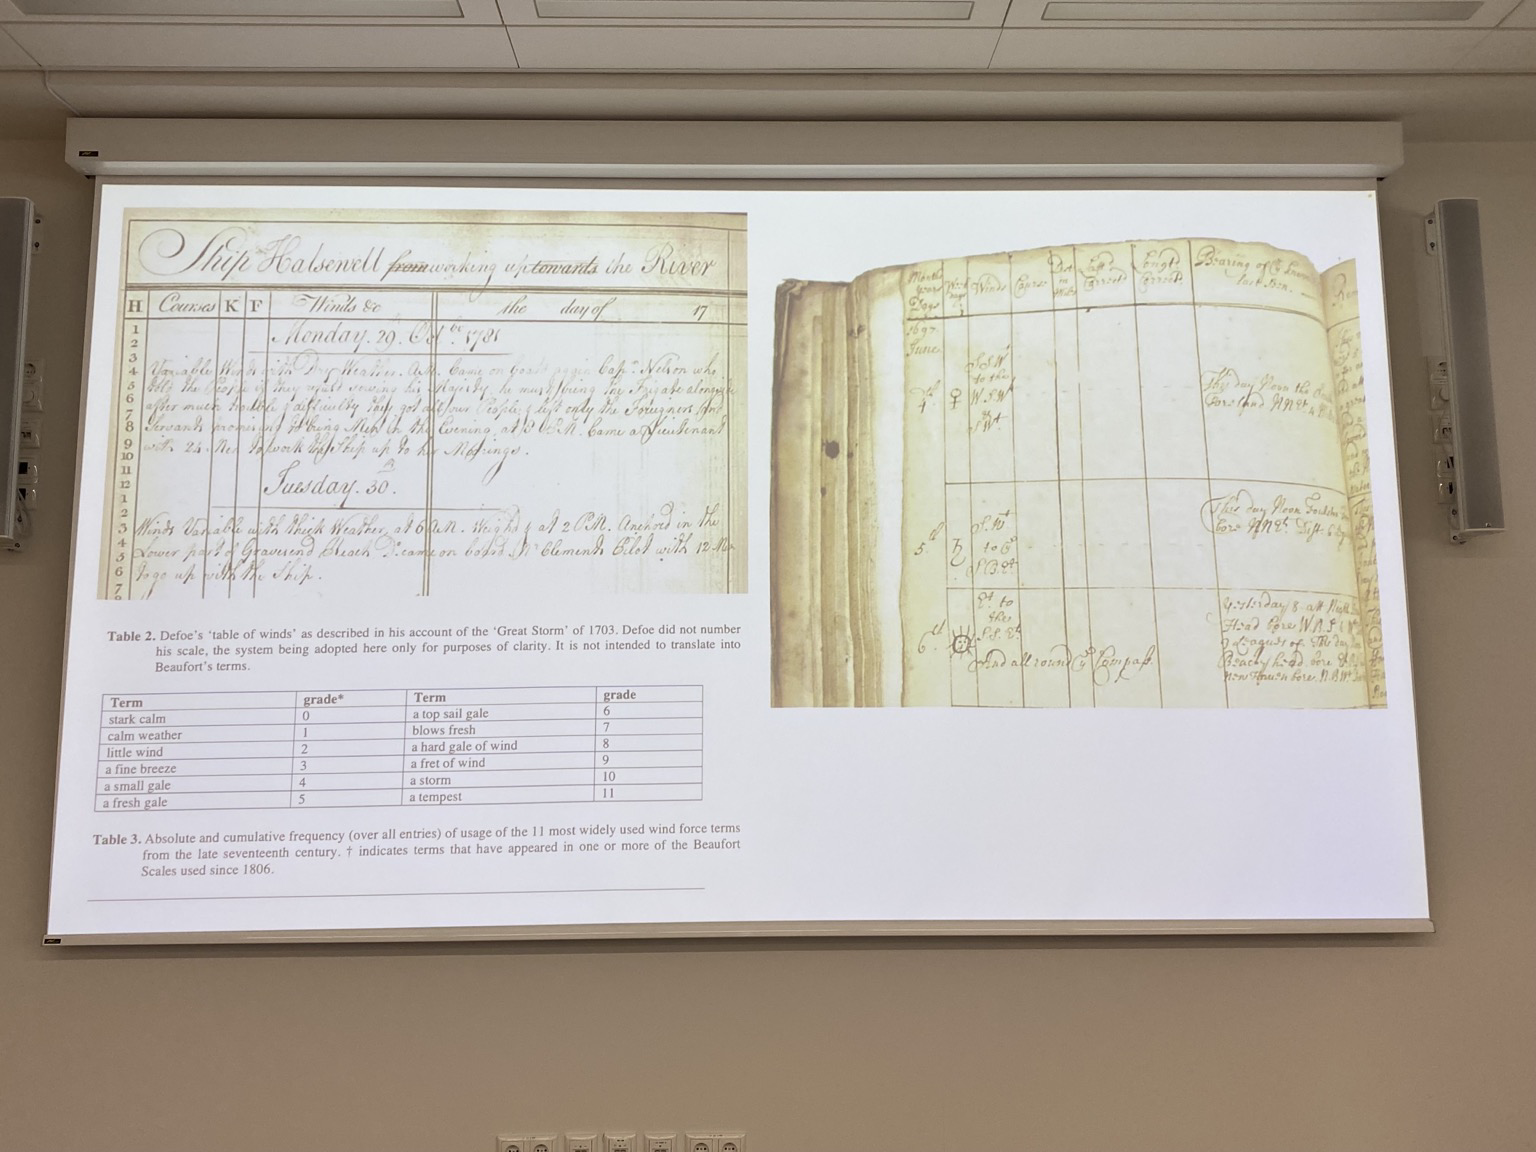 Ship Halsewell from working up towards the River
H Courses K F Winds &c the day of 17
1
2
3
4
5
6
7
8
9
10
11
12
1
2
3
4
5
6
7
Monday. 29. Octbr. 1781
Variable Winds with Dry Weather. A.M. Came on board again Capn. Nelson who
told the People if they would serving his Majesty, he must bring the Frigate alongside
after much trouble & difficulty They got all our People & left only the Foreigners And
Servants promising to bring Men in the Evening, at 8 P.M. Came a Lieutenant
with 24 Men to work the Ship up to her Moorings.
Tuesday. 30.
Winds Variable with thick Weather, at 6 A.M. Weighd & at 2 P.M. Anchord in the
Lower part of Gravesend Reach Do. came on board Mr Clements Pilot with 12 Men
to go up with the Ship.
Table 2. Defoe's 'table of winds' as described in his account of the 'Great Storm' of 1703. Defoe did not number
his scale, the system being adopted here only for purposes of clarity. It is not intended to translate into
Beaufort's terms.
Term grade* Term grade
stark calm 0 a top sail gale 6
calm weather 1 blows fresh 7
little wind 2 a hard gale of wind 8
a fine breeze 3 a fret of wind 9
a small gale 4 a storm 10
a fresh gale 5 a tempest 11
Table 3. Absolute and cumulative frequency (over all entries) of usage of the 11 most widely used wind force terms
from the late seventeenth century. † indicates terms that have appeared in one or more of the Beaufort
Scales used since 1806.
Month Years Days Week days Winds Course Dist in Miles Latt Correct Longt Correct. Bearing of ye
last seen.
1697
June
4th ♀ S.S.W
to the
W.S.W
S.Wt
This day Noon the
foreland NNEt 4
5th ♄ S.Wt
to ye
S.B.Et
This day Noon
bore NNEt
6th ☉ Et to
the
S.S.Et
And all round ye Compass.
Yesterday 8 att Night
Head bore
leagues off This day
Beachy head bore
New Haven bore